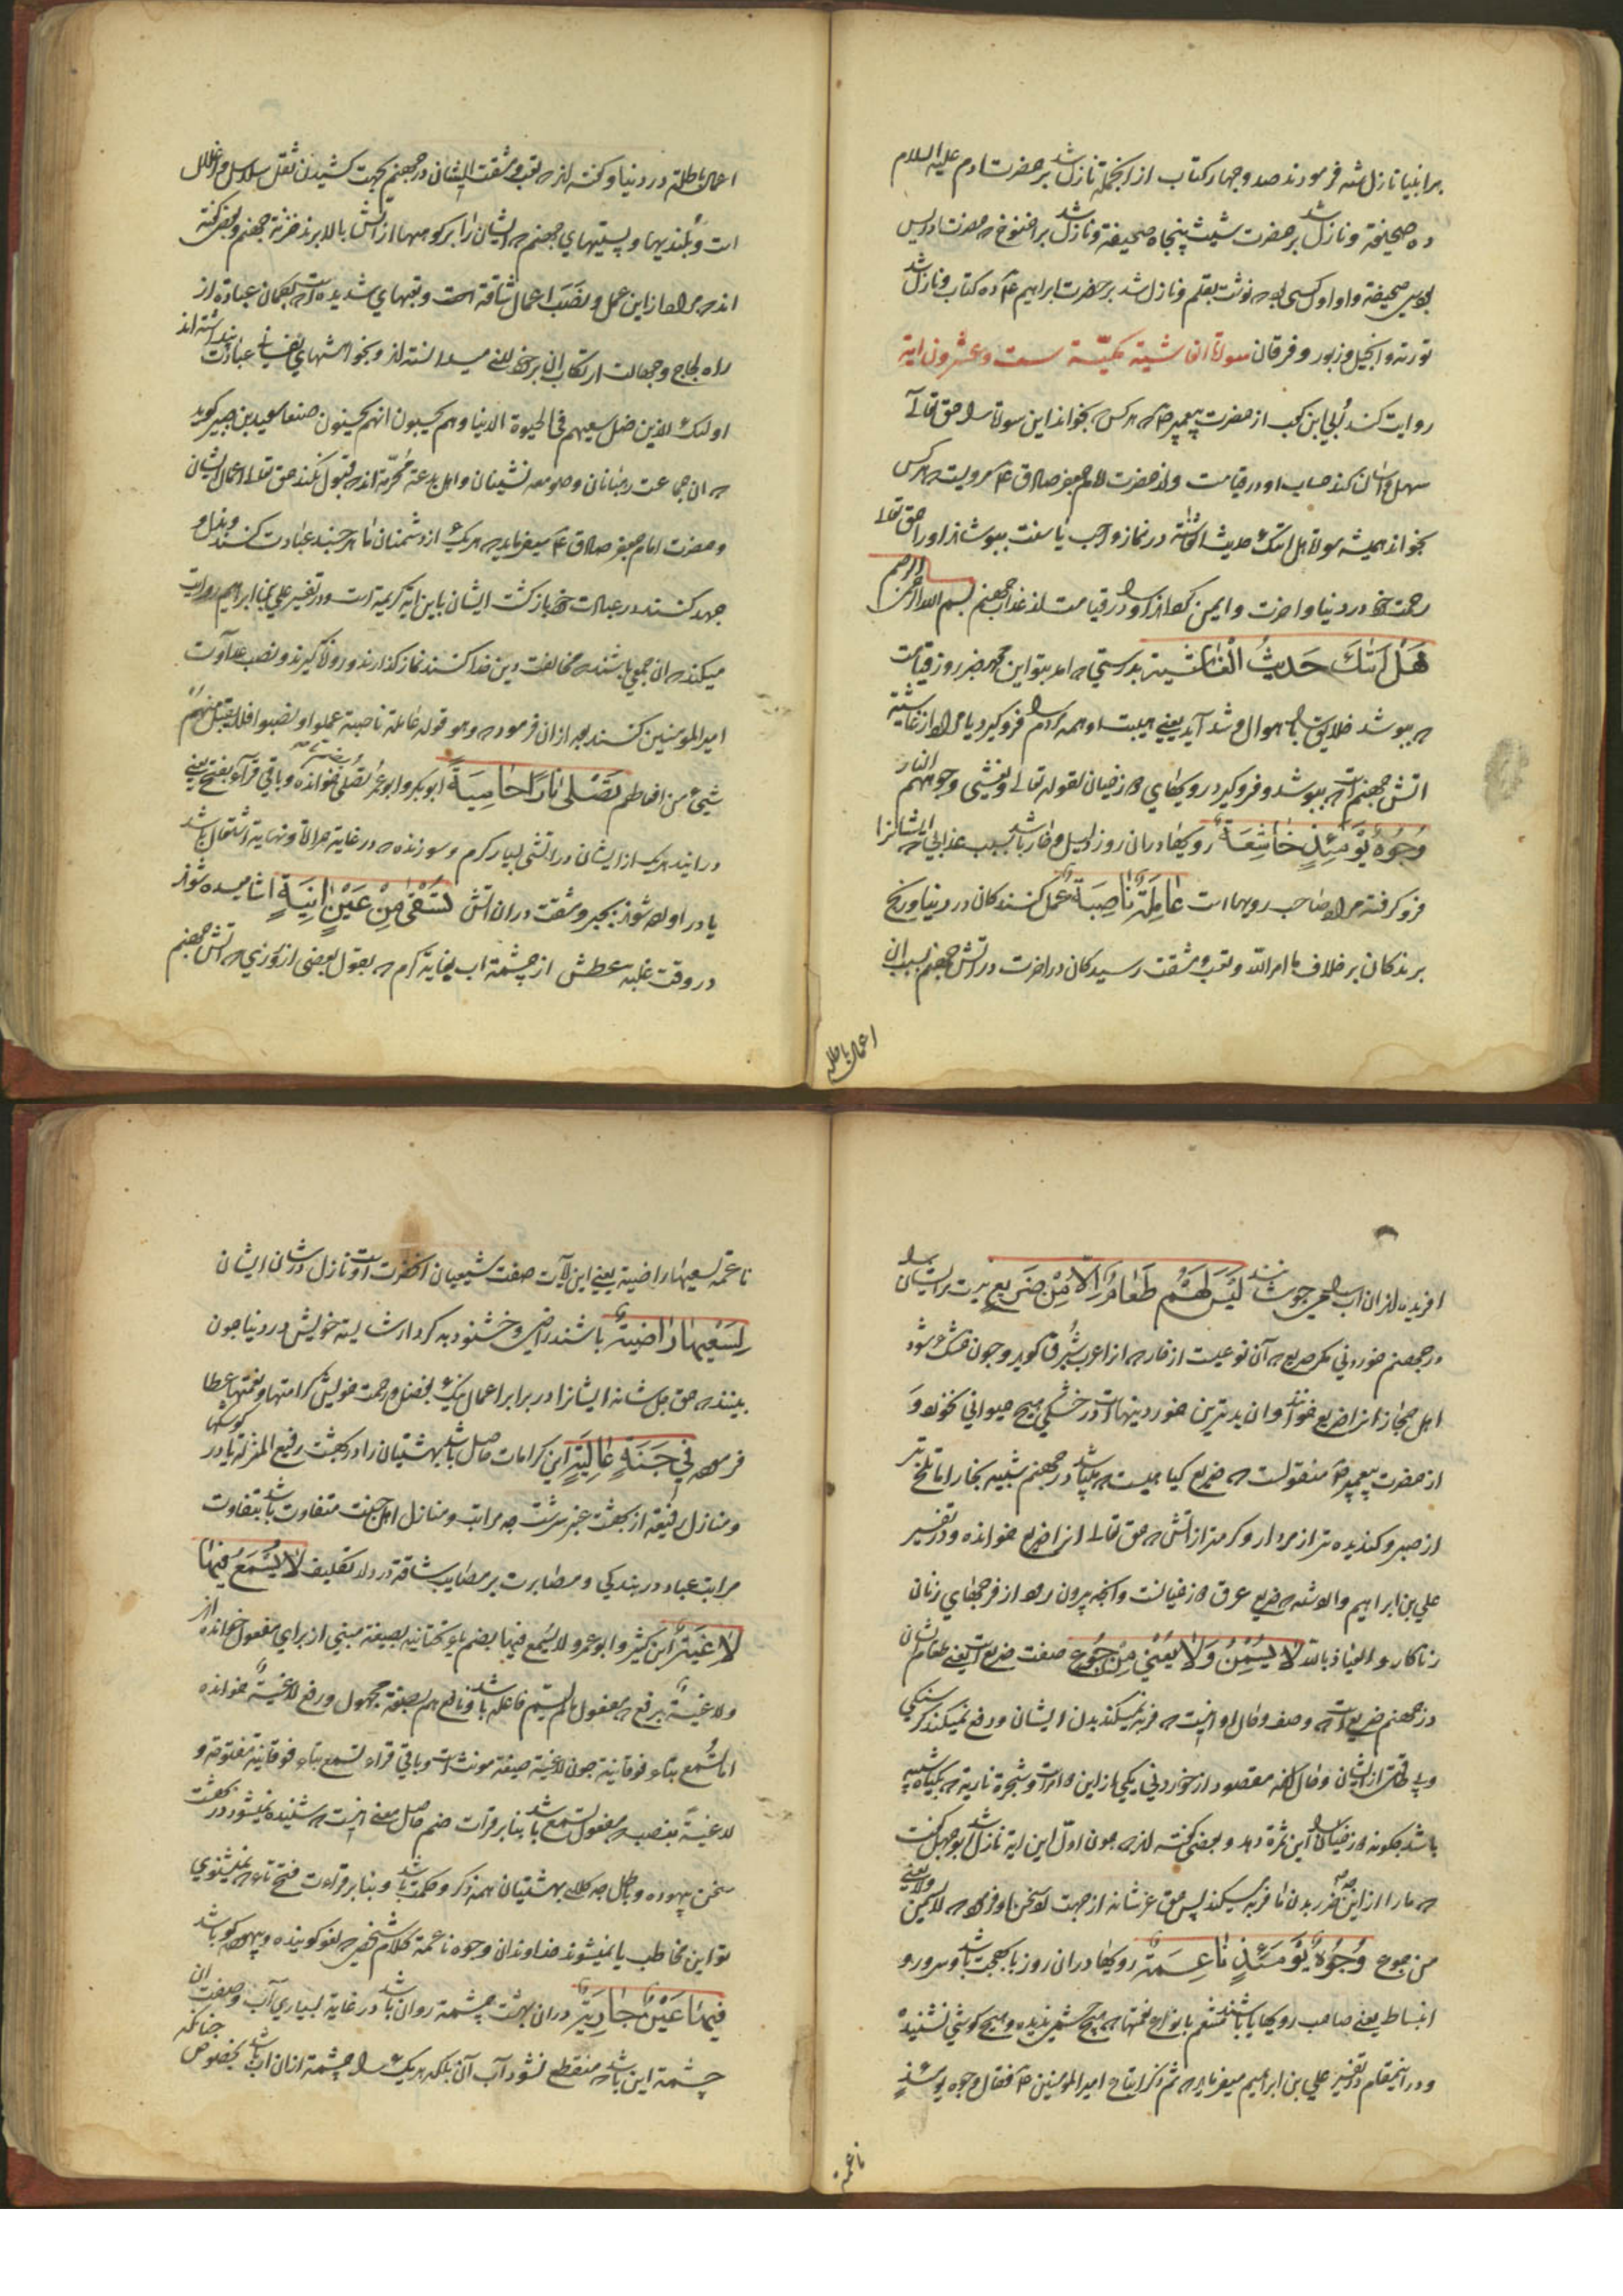 برانبیا نازل شده فرمودند صد و چهار کتاب از انجمله نازل شد بر حضرت ادم علیه السلام
ده صحیفه و نازل شد بر حضرت شیث پنجاه صحیفه و نازل شد بر اخنوخ که حضرت ادریس
بود سی صحیفه و او اول کسی بود که نوشت بقلم و نازل شد بر حضرت ابراهیم ع ده کتاب و نازل شد
توریة و انجیل و زبور و فرقان سورة الغاشیة مکیّة ست وعشرون ایة
روایت کند اُبی ابن کعب از حضرت پیغمبر ص که هر کس که بخواند این سوره را حق تعالی
سهل و اسان کند حساب او در قیامت و از حضرت امام جعفر صادق ع مرویست که هر کس
بخواند همیشه سوره هل اتیک حدیث الغاشیة در نماز واجب یا سنت بپوشاند او را حق تعالی
رحمت خود در دنیا و اخرت و ایمن کرداند او را در قیامت از عذاب جهنم بسم الله الرحمن الرحیم
هَلْ اَتٰیكَ حَدیثُ الْغٰاشیَة بدرستی که امد بتو این محمد خبر روز قیامت
که بپوشد خلایق را باهوال و شداید یعنی هیبت او همه مردم را فرو کیرد یا مراد از غاشیه
اتش جهنم است که بپوشد و فروکیرد رویهای دوزخیان لقوله تعالی وتغشی وجوههم النار
وُجُوهٌ یَوْمَئِذٍ خٰاشِعَةٌ رویها در ان روز ذلیل و خوار باشد بسبب عذابی که ایشانرا
فرو کرفته مراد صاحب رویهااست عٰامِلَةٌ نٰاصِبَةٌ عمل کنندکان در دنیا و رنج
برندکان بر خلاف ما امر الله و تعب و مشقت رسیدکان در اخرت در اتش جهنم بسبب ان
اعمال باطله
اعمال باطله در دنیا و کفته اند که تعب و مشقت ایشان در جهنم بجهت کشیدن ثقل سلاسل و اغلال
است و بلندیها و پستیهای جهنم که ایشان را بر کوههااز اتش بالا برند خزنه جهنم و بعضی کفته
اند که مراد از این عمل و نَصَب اعمال شاقه است و تعبهای شدیده است که بکمان عبادة از
راه لجاج و جهالت ارتکاب ان بر خود لازم میدانسته اند و بخواهشهای نفسانی عبادت پنداشته اند
اولئک الذین ضل سعیهم فی الحیوة الدنیا وهم یحسبون انهم یحسنون صنعا سعید بن جبیر کوید
که ان جماعت رهبانان و صومعه نشینان و اهل بدعة محرّمة اند که قبول نکند حق تعالی اعمال ایشان
و حضرت امام جعفر صادق ع میفرماید که هر یک از دشمنان ما هر چند عبادت کنند و بذل و
جهد کنند در عبادت خود بازکشت ایشان باین ایة کریمه است و در تفسیر علی بن ابراهیم روایت
میکند که ان جمعی باشند که مخالفت دین خدا کنند نماز کذارند و روزه کیرند و نصب عداوت
امیرالمؤمنین کنند بعد از ان فرموده وهو قوله عاملة ناصبة عملوا و نصبوا فلا یقبل منهم
شیئ من افعالهم تَصْلٰی نٰارًا حٰامِیَةً ابوبکر و ابو عمرو تُصلی بضم تا خوانده و باقی قراء بفتح یعنی
در ایند هر یک از ایشان در اتشی بسیار کرم و سوزنده که در غایة حرارة و نهایة اشتعال باشد
یا در اورده شوند بجبر و مشقت در ان اتش تُسْقٰی مِنْ عَیْنٍ اٰنِیَةٍ اشامیده شوند
در وقت غلبه عطش از چشمه اب بغایة کرم که بقول بعضی از روزی که اتش جهنم
افریده اند ان اب را می جوشانند لَیْسَ لَهُمْ طَعٰامٌ اِلّٰا مِنْ ضَریعٍ نیست مر ایشان را
در جهنم خوردنی مکر ضریع که آن نوعیست از خار که انرا عرب شبرق کوید و چون خشک شود
اهل حجاز انرا ضریع خوانند و ان بدترین خوردنیهاست و در خشکی هیچ حیوانی نخورد و
از حضرت پیغمبر ص منقولست که ضریع کیاهیست که میباشد در جهنم شبیه بخار اما تلخ تر
از صبر و کندیده تر از مردار و کرمتر از اتش که حق تعالی انرا ضریع خوانده و در تفسیر
علی بن ابراهیم وارد شده که ضریع عرق دوزخیانست و انچه بیرون رود از فرجهای زنان
زناکار و العیاذ بالله لٰا یُسْمِنُ وَلٰا یُغْنی مِنْ جُوعٍ صفت ضریع است یعنی طعام ایشان
در جهنم ضریع است که وصف و حال او اینست که فربه نمیکند بدن ایشان و دفع نمیکند کرسنکی
و بی طاقتی از ایشان و حال انکه مقصود از خوردنی یکی از این دو امر است و شجره ناریة که بکیاه شبیه
باشد چکونه دوزخیان را این ثمره دهد و بعضی کفته اند که چون اول این ایه نازل شد ابوجهل کفت
که ما را از این ضریع بدن ما فربه میکند پس حق عز شانه از جهت رد سخن او فرمود که لا یسمن ولا یغنی
من جوع وُجُوهٌ یَوْمَئِذٍ نٰاعِمَةٌ رویها در ان روز با بهجت باشد و سرور و
انبساط یعنی صاحب رویها باشند متنعم بانواع نعمتها که هیچ چشمی ندیده و هیچ کوشی نشنیده
و در اینمقام در تفسیر علی بن ابراهیم میفرماید که ثم ذکر اتباع امیرالمؤمنین ع فقال وجوه یومئذ
ناعمة
ناعمة لسعیها راضیة یعنی این آیات صفت شیعیان انحضرت است و نازل در شان ایشان
لِسَعْیِهٰا رٰاضِیَةٌ باشند راضی و خشنود به کردار شایسته خویش در دنیا چون
بینند که حق جل شانه ایشانرا در برابر اعمال نیک بفضل و رحمت خویش کرامتها و نعمتها عطا
فرموده فی جَنَّةٍ عٰالِیَةٍ این کرامات حاصل باشد بهشتیان را در بهشت رفیع المنزله یا در کوشکها
و منازل رفیعه از بهشت عنبر سرشت چه مراتب و منازل اهل جنت متفاوت باشد بتفاوت
مراتب عباد در بندکی و مصابرت بر مصایب شاقه در دار تکلیف لٰا یُسْمَعُ فیهٰا
لٰاغِیَةٌ ابن کثیر و ابوعمرو لا یُسمع فیها بضم یاء تحتانیه بصیغه مبنی از برای مفعول خوانده اند
و لاغیةٌ برفع که مفعول مالم یسم فاعله باشد و نافع هم بصیغه مجهول و رفع لاغیةٌ خوانده
اما تُسمع بتاء فوقانیة چون لاغیة صیغه مونث است و باقی قراء تسمع بتاء فوقانیه مفتوحه و
لاغیةً بنصب که مفعول تسمع باشد بنابر قرات ضم حاصل معنی اینست که شنیده نمیشود در بهشت
سخن بیهوده و باطل چه کلام بهشتیان همه ذکر و حکمت باشد و بنابر قراءت فتح تاء که نمیشنوی
تو این مخاطب یا نمیشوند خداوندان وجوه ناعمة کلام شخصی که لغو کوینده و بیهوده کو باشد
فیهٰا عَیْنٌ جٰارِیَةٌ در ان بهشت چشمه روان باشد در غایة بسیاری آب و صفت ان
چشمه این باشد که منقطع نشود آب آن بلکه هر یک را چشمه از ان اب باشد بخصوص چنانکه